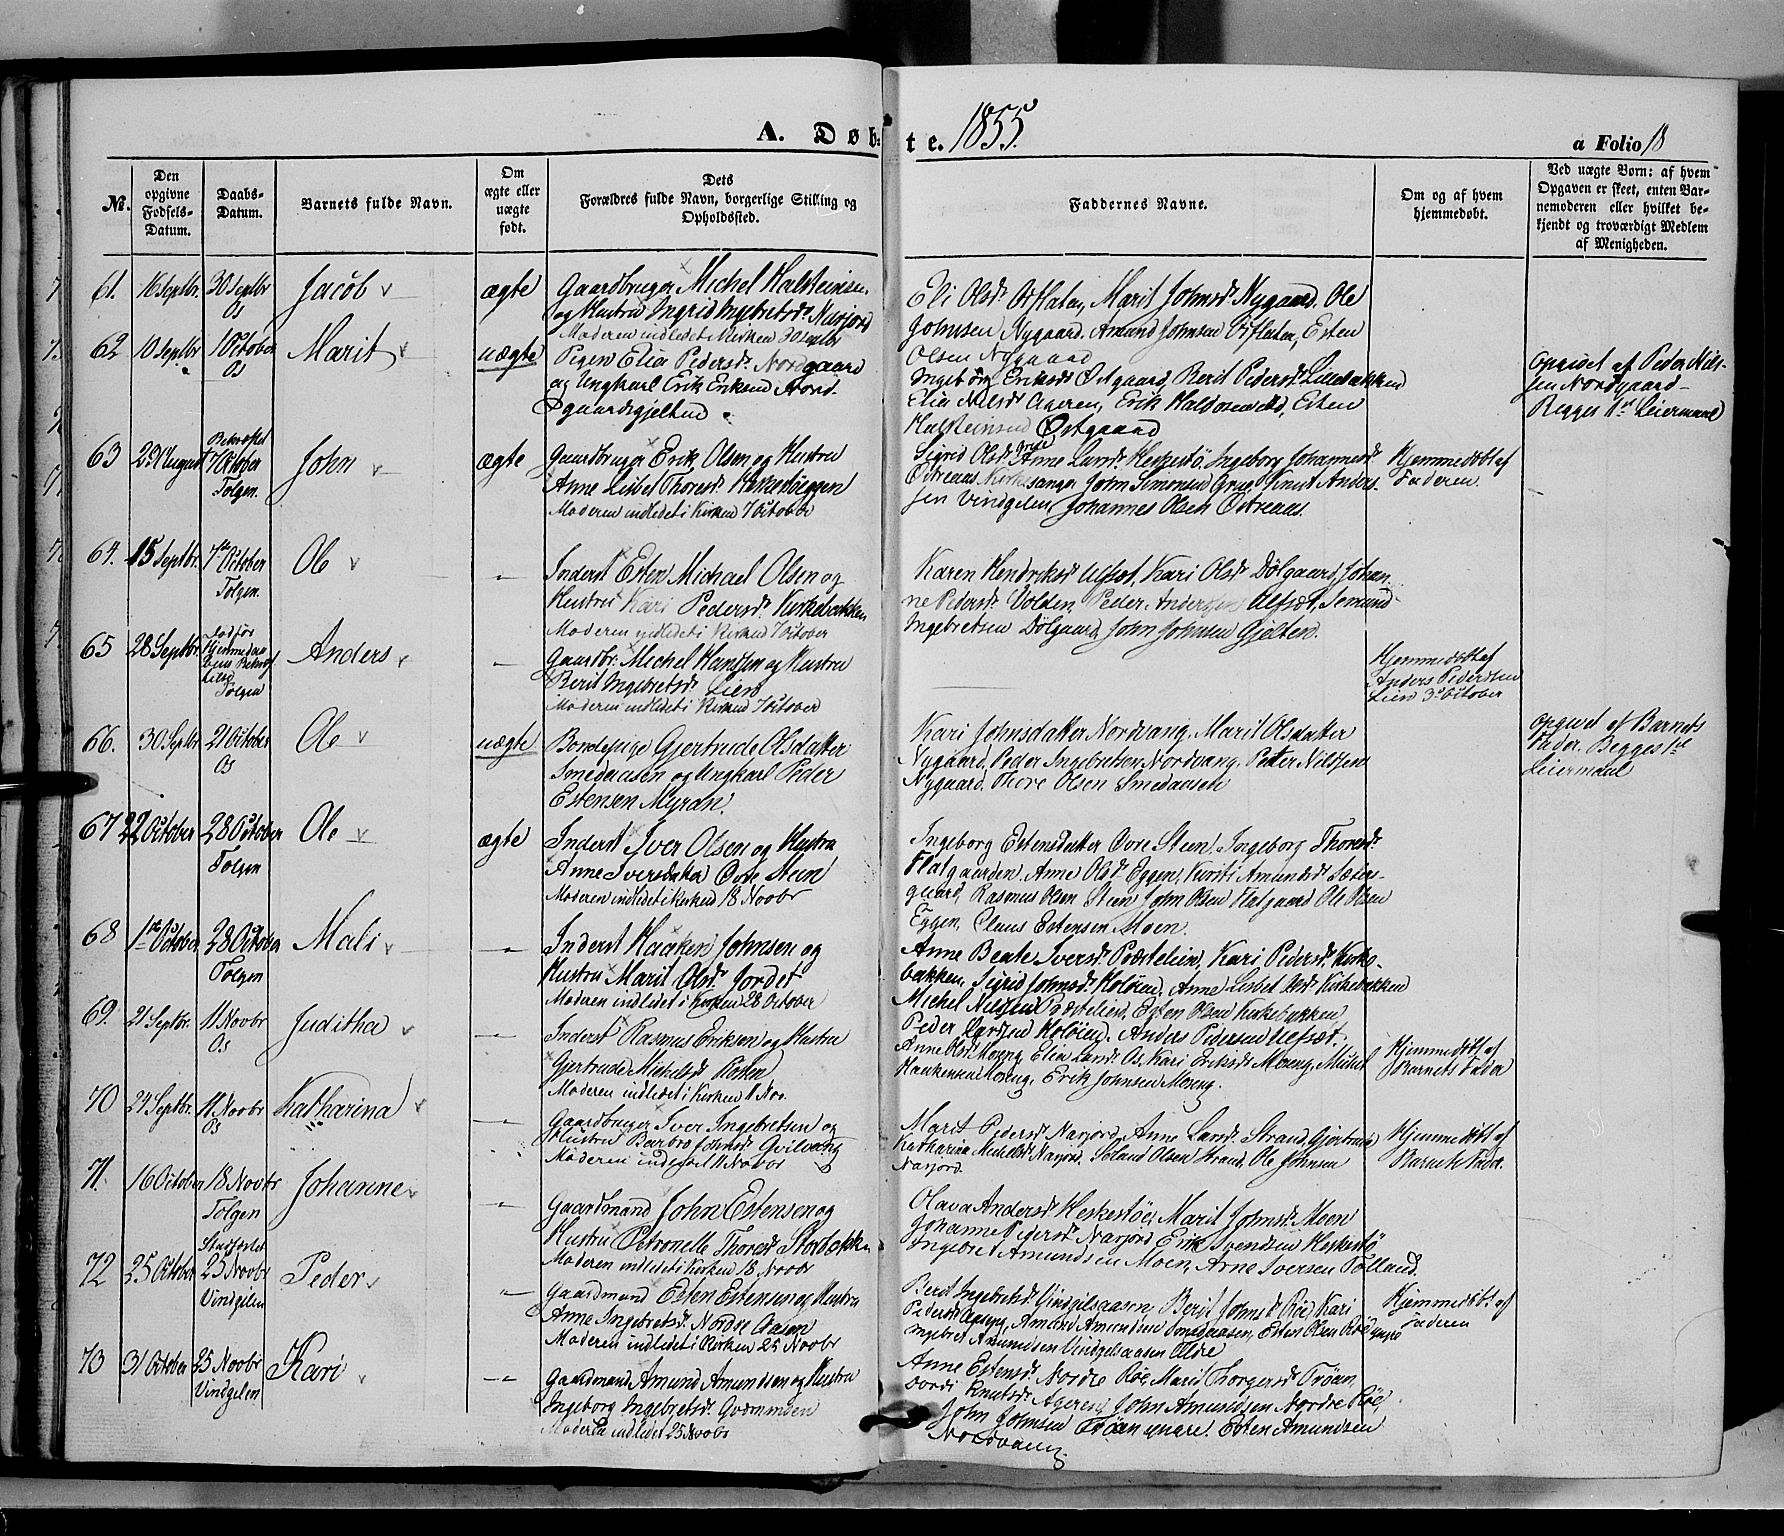 A. Døb-
te. 1855.
a Folio 18
No.
Den opgivne Fødsels-Datum.
Daabs-Datum.
Barnets fulde Navn.
Om ægte eller uægte født.
Dets Forældres fulde Navn, borgerlige Stilling og Opholdssted.
Faddernes Navne.
Om og af hvem hjemmedøbt.
Ved uægte Børn: af hvem Opgaven er skeet, enten Barnemoderen eller hvilket bekjendt og troværdigt Medlem af Menigheden.
61. 16 Septbr. 30 Septbr Os
Jacob
ægte
Gaardbruger Michel Halsteinsen
og Hustru Ingrid Ingebretsdr Narjord
Moderen indledet i Kirken 30 Septbr
Eli Olsdr Osflaten, Marit Johnsdr Nygaard, Ole
Johnsen Nygaard, Amund Johnsen Osflaten, Esten
Olsen Nygaard
62 10 Septbr 1 October Os
Marit
uægte
Pigen Elia Pedersdr Nordgaard
og Ungkarl Erik Eriksen Nord-
gaardsgjelten
Ingeborg Eriksdr Østgaard, Berit Pedersdr Lillebakken
Elia Nilsdr Ageren, Erik Haldosen, Esten
Halsteinsen Østgaard
opgivet af Peder Nils-
sen Nordgaard -
Begges 1ste Leiermaal
63 29 August Bekræftet 7 October Tolgen.
John
ægte
Gaardbruger Erik Olsen og Hustru
Anne Lisbet Thoresdr Bakkebøggen
Moderen indledet i Kirken 7 October
Sigrid Olsdr Anne Larsdr Heskestø, Ingeborg Johannesdr
Østreaas, Kirkesanger John Simonsen Grue, Knut Anders-
sen Vindgelen, Johannes Olsen Østreaas.
Hjemmedøbt af
Faderen
64. 15 Septbr. 7de October Tolgen.
Ole
Inderst Esten Michael Olsen og
Hustru Kari Pedersdr Kirkebakken
Moderen indledet i Kirken 7 October
Karen Hendriksdr Ulfset, Kari Olsdr Dølgaard, Johan-
ne Pedersdr Volden, Peder Andersen Ulfset, Semund
Ingebretsen Dølgaard, John Johnsen Gjelten.
65 28 Septbr. Tolgen
Anders
Gaardbr. Michel Hansen og Hustru
Berit Ingebretsdr Lien
Moderen indledet i Kirken 7 October
Hjemmedøbt af
Anders Pedersen
Lien 3 October
66. 30 Septbr 21 October Os
Ole
uægte
Bondepige Gjertrude Olsdatter
Smedaasen og Ungkarl Peder
Estensen Myran.
Kari Johnsdatter Nordvang, Marit Olsdatter
Nygaard, Peder Ingebretsen Nordvang, Petter Nilssen
Nygaard, Thore Olsen Smedaasen
opgivet af Barnets
Fader. Begges 1ste
Leiermaal
67 22 October 28 October Tolgen
Ole
ægte
Inderst Iver Olsen og Hustru
Anne Iversdatter Øvre Steen
Moderen indledet i Kirken 18 Novbr
Ingeborg Estensdatter Øvre Steen, Ingeborg Thoresdr
Flatgaarden, Anne Olsdr Eggen, Kirsti Amundsdr Sæter-
gaard, Rasmus Olsen Steen, John Olsen Flatgaard, Ole Olsen
Eggen, Claus Estensen Moen.
68 1ste October 28 October Tolgen
Mali
Inderst Haaken Johnsen og
Hustru Marit Olsdr Jordet
Moderen indledet i Kirken 28 October
Anne Beate Iversdr Præstelien, Kari Pedersdr Kirke-
bakken, Sigrid Johnsdr Holøien, Anne Lisbet Olsdr Kirkebakken
Michel Nilssen Præstelien, Esten Olsen Kirkebakken
Peder Larssen Holøien, Anders Pedersen Ulfsæt.
69. 21 Septbr. 11 Novbr Os
Juditha
Inderst Rasmus Eriksen og Hustru
Gjertrude Michelsdr Røsten
Moderen indledet i Kirken 11 Nov.
Anne Olsdr Moreng, Elia Larsdr Os, Kari Eriksdr Moreng, Michel
Haakensen Moreng, Erik Johnsen Moreng.
Hjemmedøbt af
Barnets Fader
70 24 Septbr. 11 Novbr Os
Katharina
Gaardbruger Iver Ingebretsen og
Hustru Barbro Johnsdr Qvilvang
Moderen indledet 11 Novbr
Marit Pedersdr Narjord, Anne Larsdr Strand, Gjertrude
Katharina Michelsdr Narjord, Erland Olsen Strand, Ole Johnsen
Narjord.
Hjemmedøbt af
Barnets Fader.
71. 16 October 18 Novbr Tolgen
Johanne
Gaardmand John Estensen og
Hustru Petronelle Thoresdr Storbækken
Moderen indledet i Kirken 18 Novbr
Olava Andersdr Heskestøe, Marit Johnsdr Moen
Johanne Pedersdr Narjord, Erik Svendsen Heskestø
Ingebret Amundsen Moen, Arne Iversen Tolland.
72 25 October Stadfæstet 25 Novbr Vindgelen
Peder
Gaardmand Esten Estensen og Hustru
Anne Ingebretsdr Nordre Aasen
Moderen indledet i Kirken 25 Novbr
Berit Ingebretsdr Vindgelsaasen, Berit Johnsdr Røe, Kari
Pedersdr Ageren, Amund Amundsen Smedaasen, Esten Olsen Røe yngre
Ingebret Amundsen Vindgelsaasen Eldre
Hjemmedøbt af
Faderen
73 31 October 25 Novbr Vindgelen
Kari
Gaardmand Amund Amundsen og Hustru
Ingeborg Ingebretsdr Qvæmmoen
Moderen indledet 25 Novbr
Anne Estensdr Nordre Røe, Marit Thorgersdr Trøan,
Dordi Knutsdr Ageren, John Amundsen Nordre Røe,
John Johnsen Trøan yngre, Esten Amundsen
Nordvang